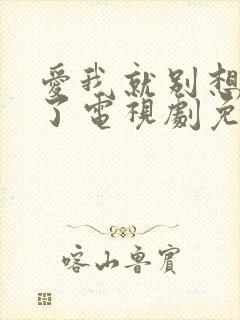 愛我就别想
了電視劇免
喀山魯賓